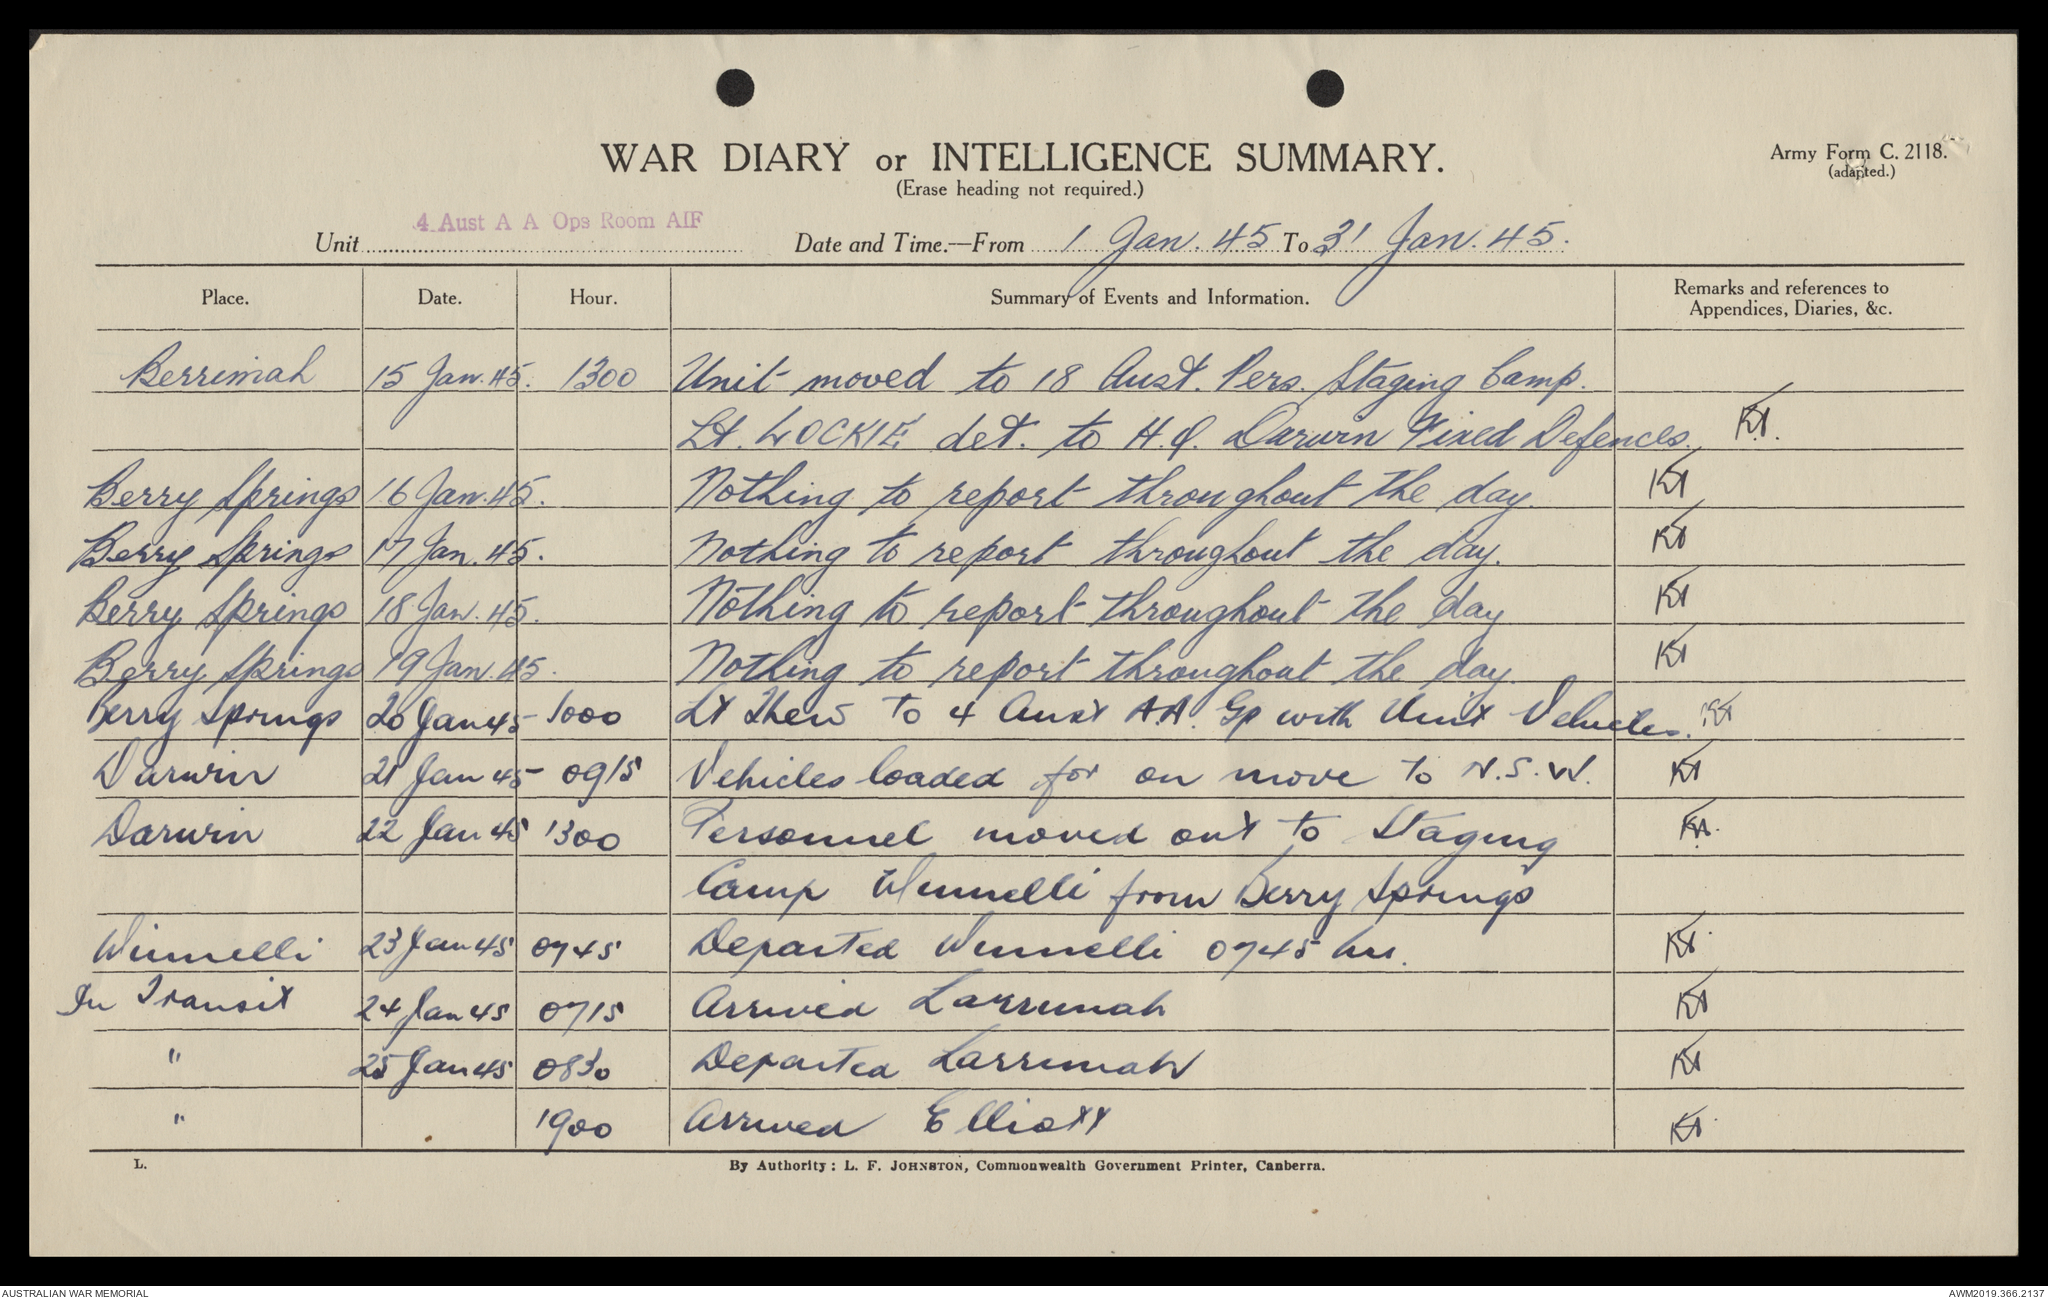 WAR DIARY or INTELLIGENCE SUMMARY.
Army Form C. 2118.
(Erase heading not required.)
(adapted.)
Unit 4 Aust A A Ops Room AIF Date and Time.—From 1 Jan. 45 To 31 Jan. 45.
Place. Date. Hour. Summary of Events and Information. Remarks and references to
Appendices, Diaries, &c.
Berrimah 15 Jan. 45. 1300 Unit moved to 18 Aust. Pers. Staging Camp.
Lt. LOCKIE det. to H.Q. Darwin Fixed Defences.
Berry Springs 16 Jan. 45. Nothing to report throughout the day.
Berry Springs 17 Jan. 45. Nothing to report throughout the day.
Berry Springs 18 Jan. 45. Nothing to report throughout the day
Berry Springs 19 Jan. 45. Nothing to report throughout the day.
Berry Springs 20 Jan 45 1000 Lt Thew to 4 Aust A.A. Gp with Unit Vehicles.
Darwin 21 Jan 45 0915 Vehicles loaded for on move to N.S.W.
Darwin 22 Jan 45 1300 Personnel moved out to Staging
Camp Winnelli from Berry Springs
Winnelli 23 Jan 45 0745 Departed Winnelli 0745 hrs.
In Transit 24 Jan 45 0715 Arrived Larrimah
" 25 Jan 45 0830 Departed Larrimah
" 1900 Arrived Elliott
L. By Authority: L. F. JOHNSTON, Commonwealth Government Printer, Canberra.
AUSTRALIAN WAR MEMORIAL AWM2019.366.2137